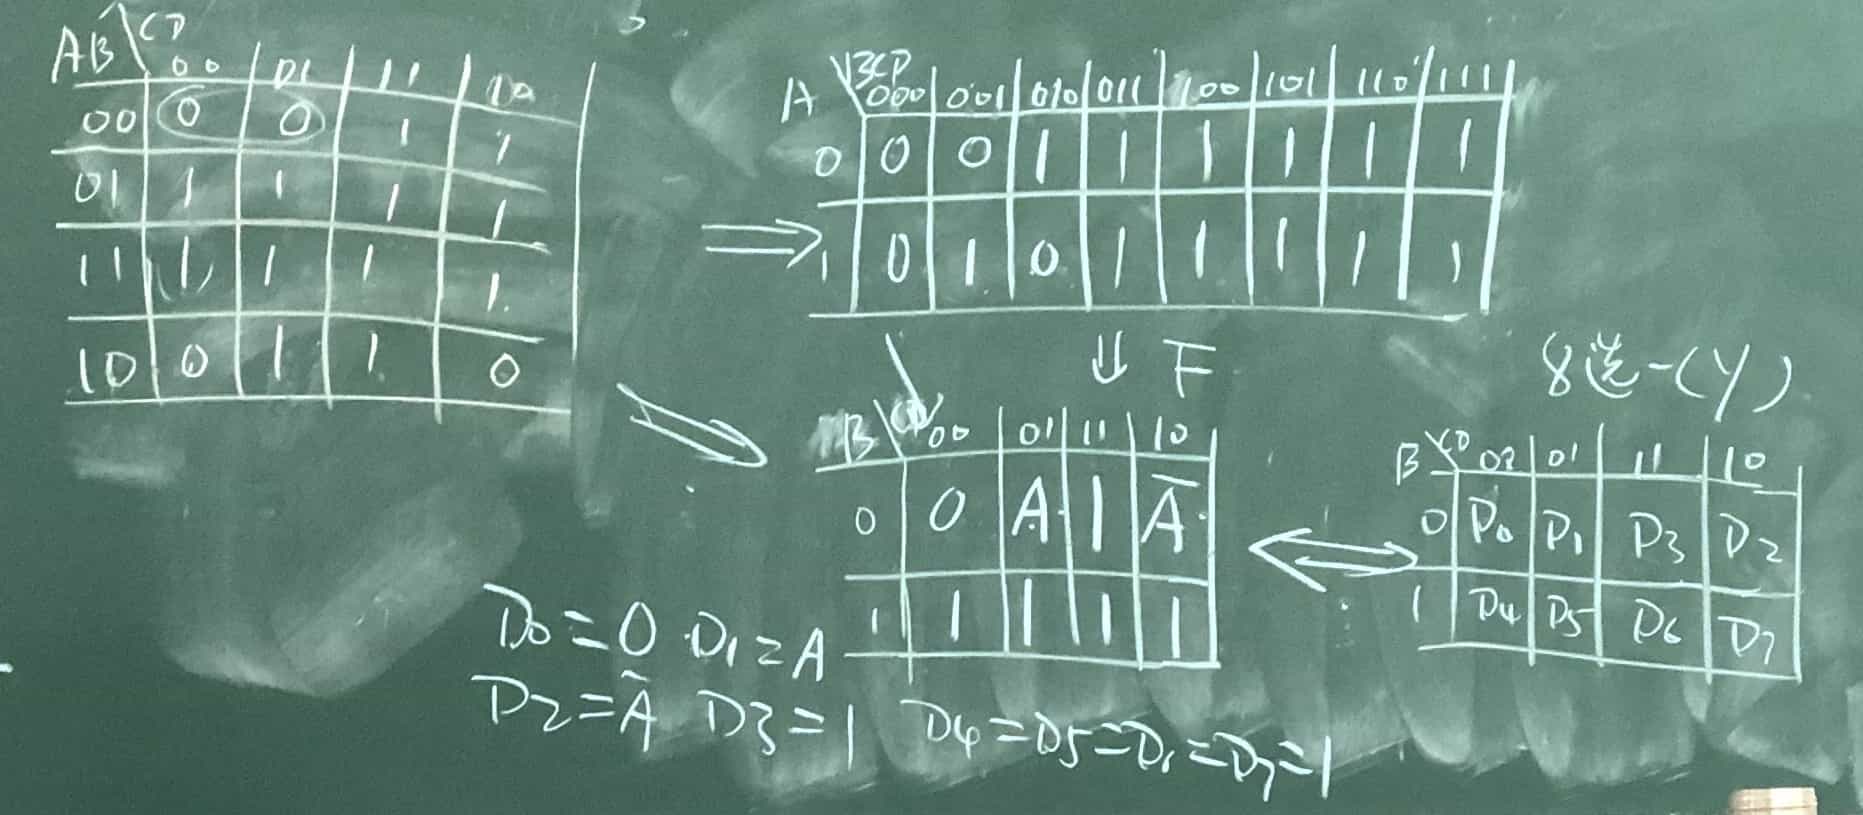 AB\CD 00 01 11 10
00 0 0 1 1
01 1 1 1 1
11 1 1 1 1
10 0 1 1 0
A\BCD 000 001 010 011 100 101 110 111
0 0 0 1 1 1 1 1 1
1 0 1 0 1 1 1 1 1
⇒
⇓ F
8选一(Y)
B\CD 00 01 11 10
0 0 A 1 Ā
1 1 1 1 1
⇔
B\CD 00 01 11 10
0 D0 D1 D3 D2
1 D4 D5 D6 D7
D0=0 D1=A
D2=Ā D3=1 D4=D5=D6=D7=1